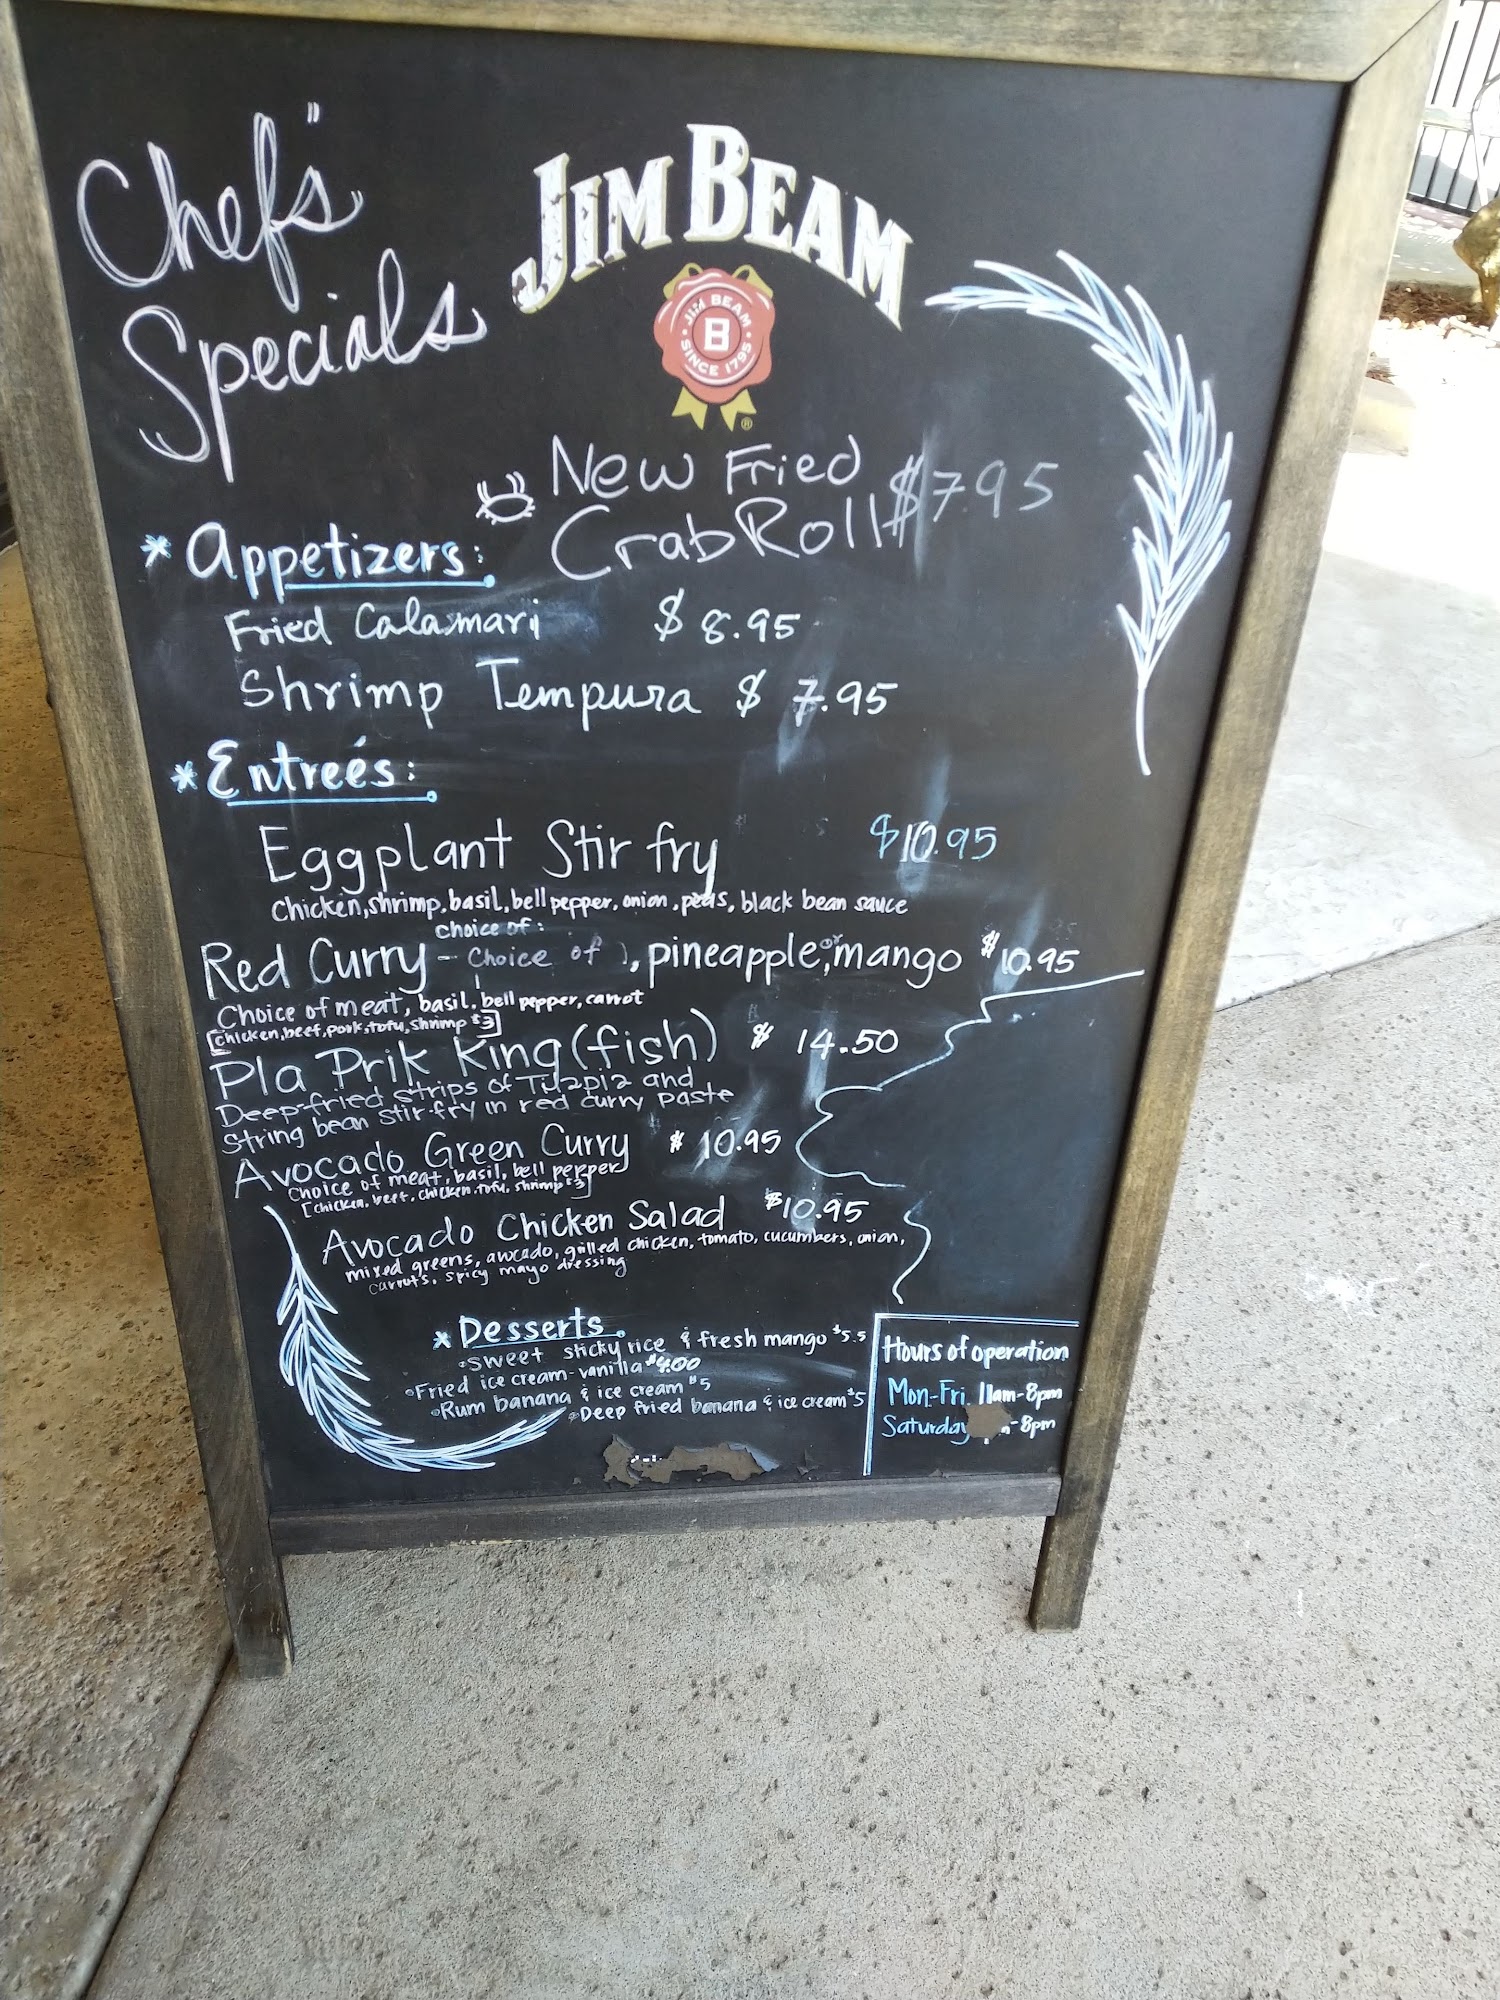 Chefs"
Specials
JIM BEAM
JIM BEAM
B
SINCE 1795
®
New Fried
Crab Roll $7.95
* Appetizers:
Fried Calamari $ 8.95
Shrimp Tempura $ 7.95
* Entreés:
Eggplant Stir fry $10.95
chicken, shrimp, basil, bell pepper, onion, peas, black bean sauce
choice of:
Red Curry - choice of , pineapple, or mango $10.95
Choice of meat, basil, bell pepper, carrot
[chicken, beef, pork, tofu, shrimp $3]
Pla Prik King (fish) $ 14.50
Deep-fried strips of Tilapia and
String bean stir-fry in red curry paste
Avocado Green Curry $ 10.95
Choice of meat, basil, bell pepper
[chicken, beef, chicken, tofu, shrimp $3]
Avocado Chicken Salad $10.95
mixed greens, avocado, grilled chicken, tomato, cucumbers, onion,
carrots. spicy mayo dressing
* Desserts
sweet sticky rice & fresh mango $5.5
Fried ice cream - vanilla $4.00
Rum banana & ice cream $5
Deep fried banana & ice cream $5
Hours of operation
Mon-Fri. 11am-8pm
Saturday -8pm